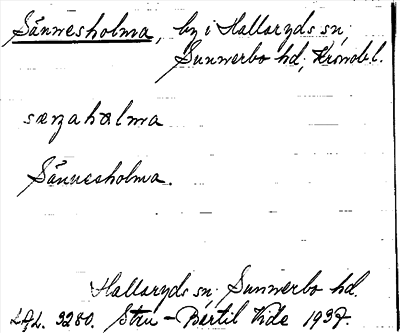 Sännesholma, by i Hallaryds sn,
Sunnerbo hd, Kronob.l.
sæzahalma
Sännesholma.
Hallaryds sn, Sunnerbo hd.
3280. Stud. Bertil Vide 1937